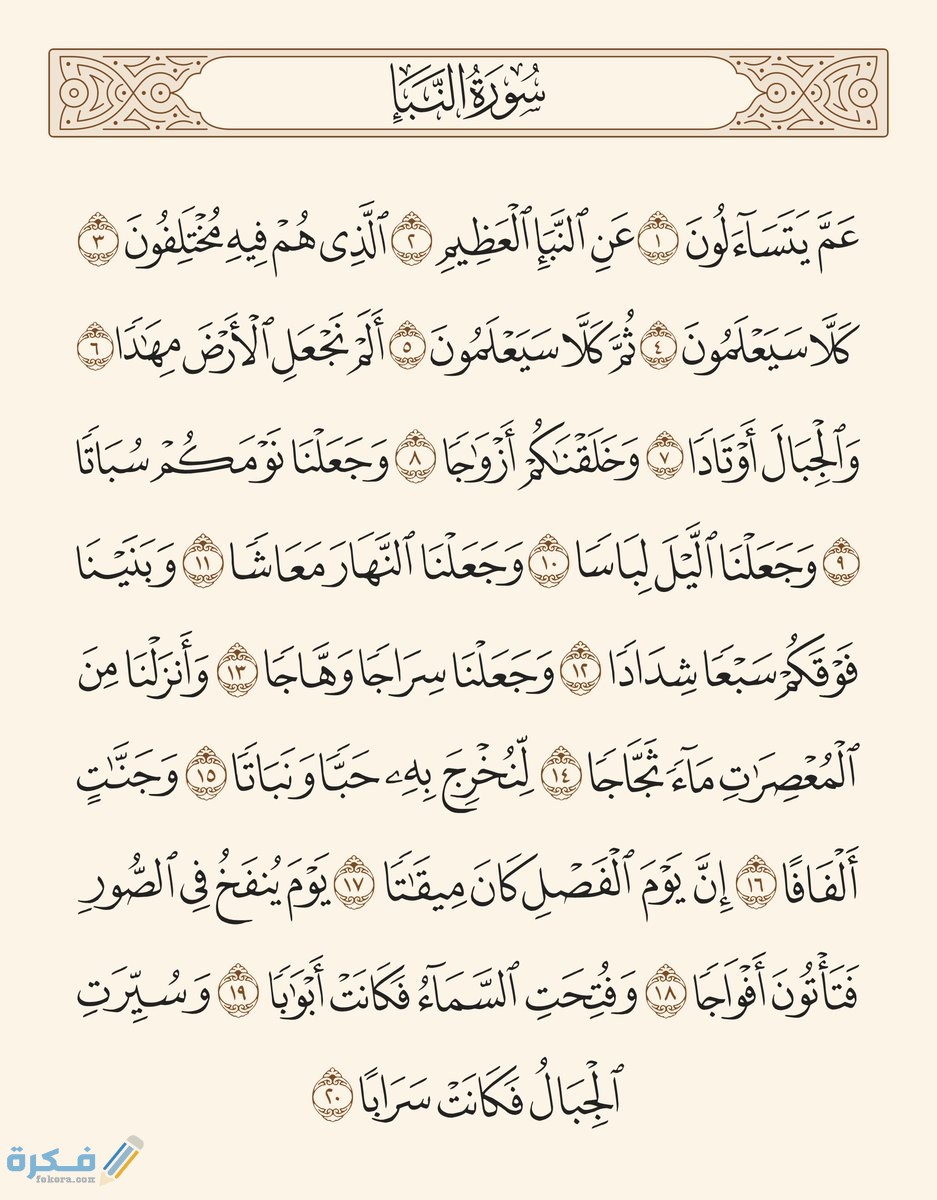 سُورَةُ النَّبَإِ
عَمَّ يَتَسَآءَلُونَ ١ عَنِ ٱلنَّبَإِ ٱلْعَظِيمِ ٢ ٱلَّذِى هُمْ فِيهِ مُخْتَلِفُونَ ٣
كَلَّا سَيَعْلَمُونَ ٤ ثُمَّ كَلَّا سَيَعْلَمُونَ ٥ أَلَمْ نَجْعَلِ ٱلْأَرْضَ مِهَٰدًا ٦
وَٱلْجِبَالَ أَوْتَادًا ٧ وَخَلَقْنَٰكُمْ أَزْوَٰجًا ٨ وَجَعَلْنَا نَوْمَكُمْ سُبَاتًا
٩ وَجَعَلْنَا ٱلَّيْلَ لِبَاسًا ١٠ وَجَعَلْنَا ٱلنَّهَارَ مَعَاشًا ١١ وَبَنَيْنَا
فَوْقَكُمْ سَبْعًا شِدَادًا ١٢ وَجَعَلْنَا سِرَاجًا وَهَّاجًا ١٣ وَأَنزَلْنَا مِنَ
ٱلْمُعْصِرَٰتِ مَآءً ثَجَّاجًا ١٤ لِّنُخْرِجَ بِهِۦ حَبًّا وَنَبَاتًا ١٥ وَجَنَّٰتٍ
أَلْفَافًا ١٦ إِنَّ يَوْمَ ٱلْفَصْلِ كَانَ مِيقَٰتًا ١٧ يَوْمَ يُنفَخُ فِى ٱلصُّورِ
فَتَأْتُونَ أَفْوَاجًا ١٨ وَفُتِحَتِ ٱلسَّمَآءُ فَكَانَتْ أَبْوَٰبًا ١٩ وَسُيِّرَتِ
ٱلْجِبَالُ فَكَانَتْ سَرَابًا ٢٠
فكرة
fekera.com